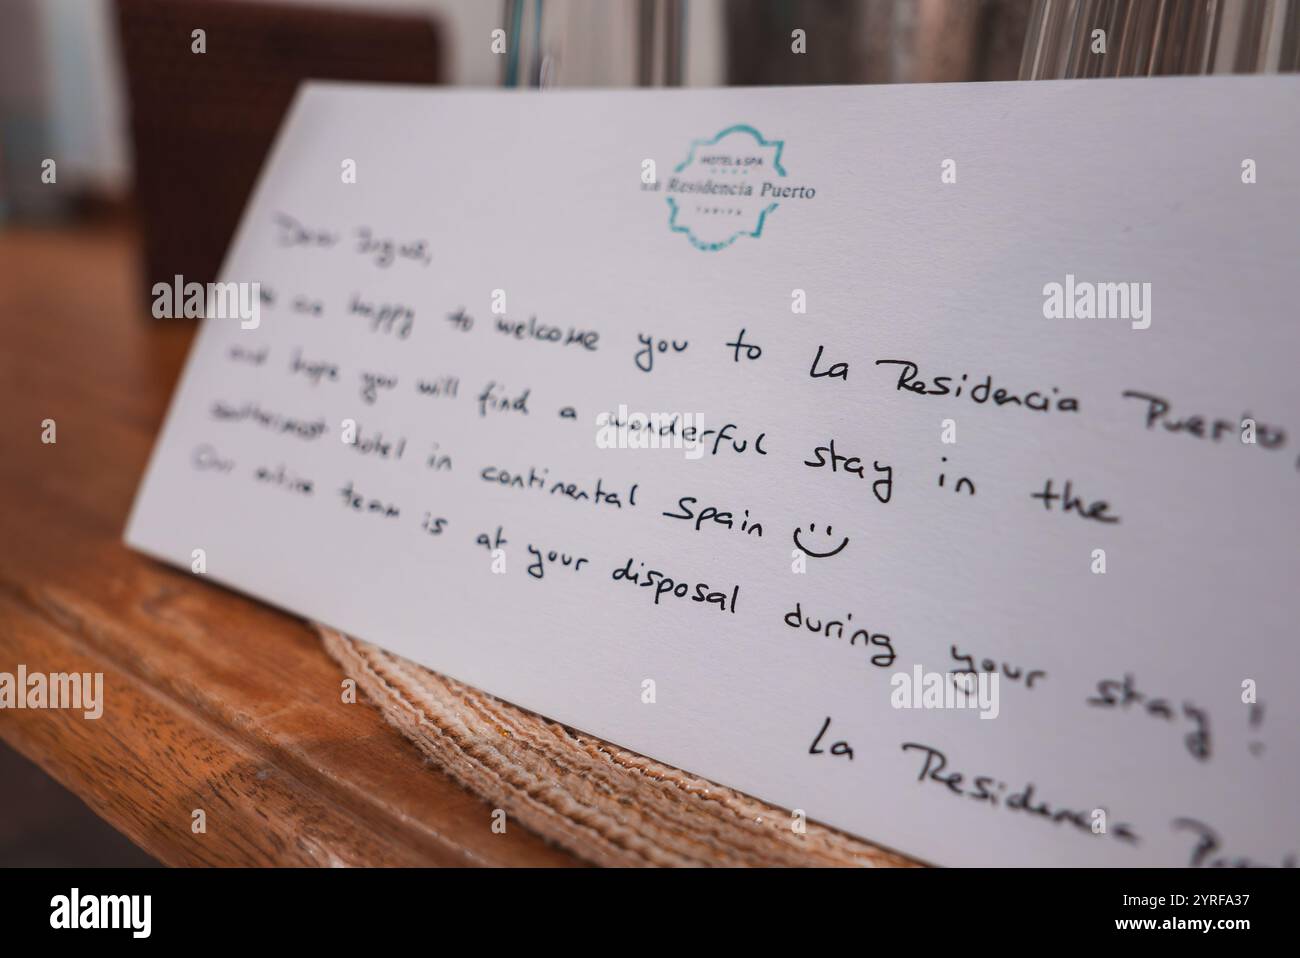 HOTEL & SPA
La Residencia Puerto
TARIFA
Dear
We are happy to welcome you to La Residencia Puerto,
and hope you will find a wonderful stay in the
southernmost hotel in continental Spain
Our entire team is at your disposal during your stay!
La Residencia Puerto
a
alamy
alamy
Image ID: 2YRFA37
www.alamy.com